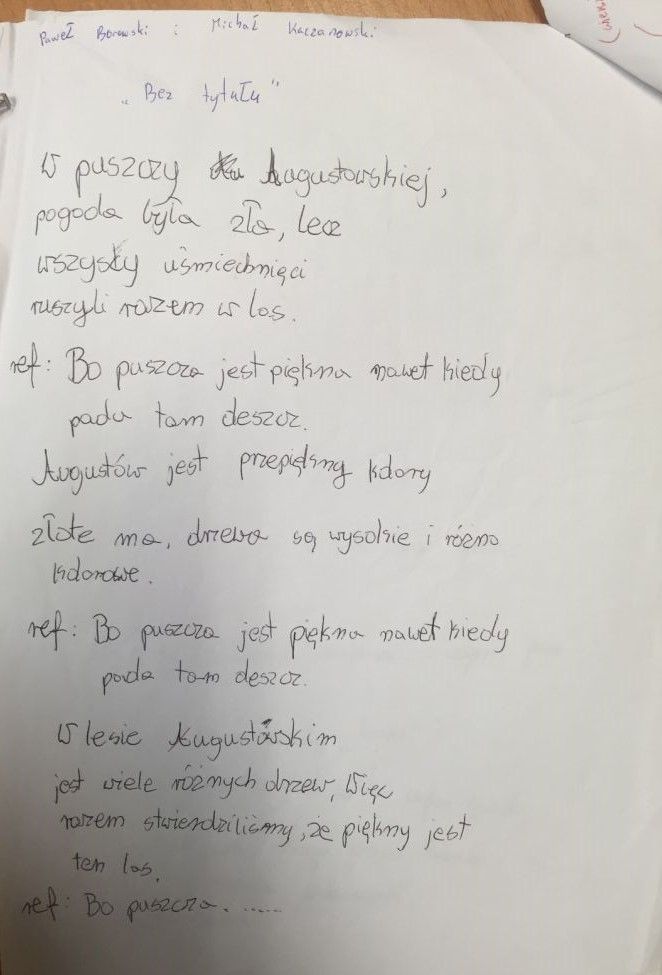 Paweł Borowski i Michał Kaczanowski
„Bez tytułu"
W puszczy Augustowskiej,
pogoda była zła, lecz
wszyscy uśmiechnięci
ruszyli razem w las.
ref: Bo puszcza jest piękna nawet kiedy
pada tam deszcz.
Augustów jest przepiękny kolory
złote ma, drzewa są wysokie i różno
kolorowe.
ref: Bo puszcza jest piękna nawet kiedy
pada tam deszcz.
W lesie Augustowskim
jest wiele różnych drzew, Więc
razem stwierdziliśmy, że piękny jest
ten las.
ref: Bo puszcza.......